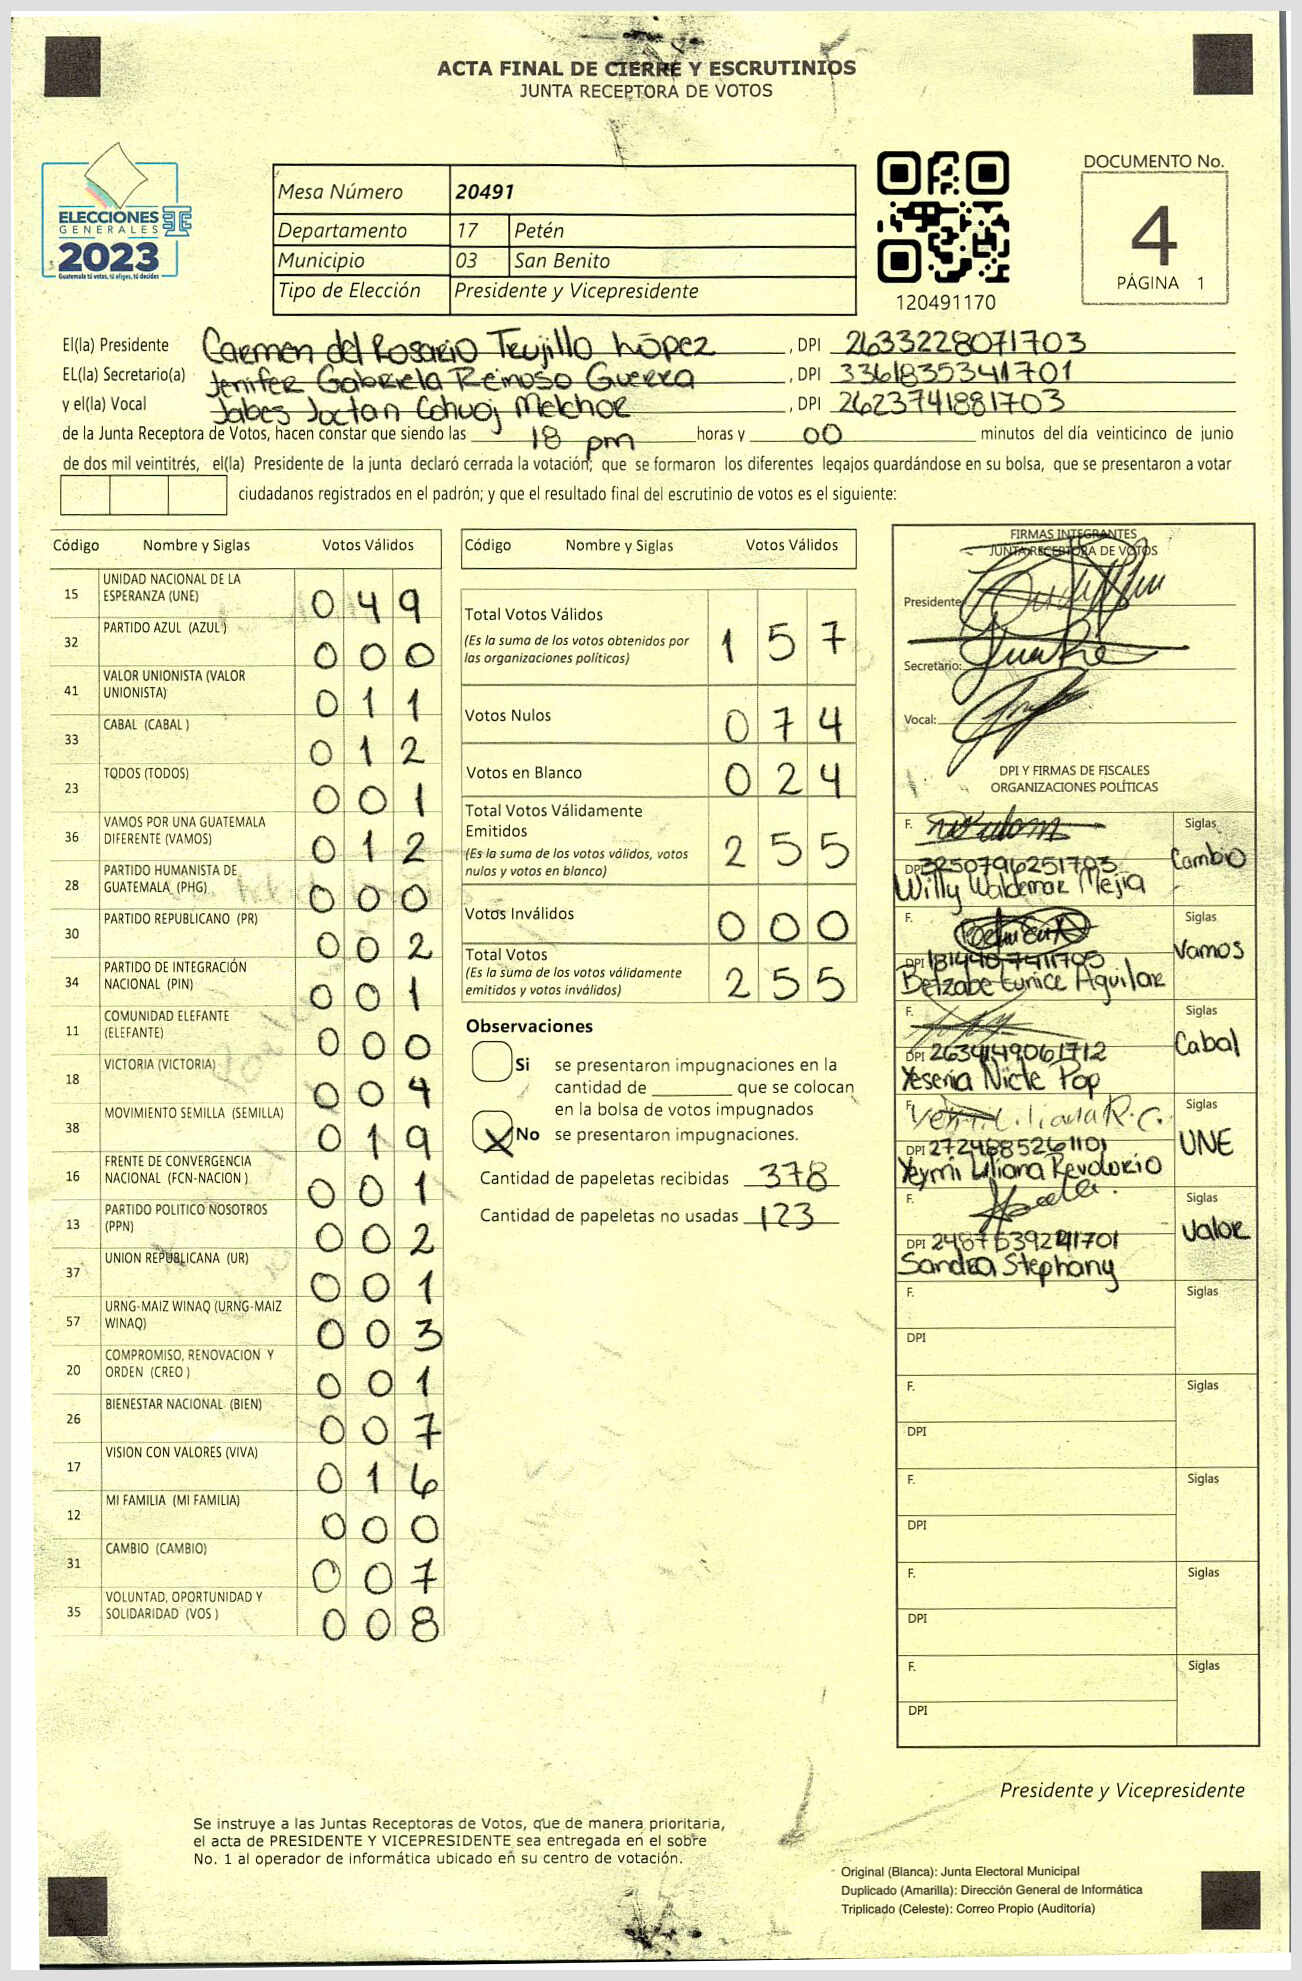 ACTA FINAL DE CIERRE Y ESCRUTINIOS
JUNTA RECEPTORA DE VOTOS
ELECCIONES
GENERALES
2023
Guatemala tú votas, tú eliges, tú decides
Mesa Número 20491
Departamento 17 Petén
Municipio 03 San Benito
Tipo de Elección Presidente y Vicepresidente
120491170
DOCUMENTO No.
4
PÁGINA 1
El(la) Presidente Carmen del Rosario Trujillo López , DPI 2633228071703
EL(la) Secretario(a) Jenifer Gabriela Reinoso Guerra , DPI 3361835341701
y el(la) Vocal Jabes Joctan Cohuoj Melchor , DPI 2623741881703
de la Junta Receptora de Votos, hacen constar que siendo las 18 pm horas y 00 minutos del día veinticinco de junio
de dos mil veintitrés, el(la) Presidente de la junta declaró cerrada la votación; que se formaron los diferentes legajos guardándose en su bolsa, que se presentaron a votar
ciudadanos registrados en el padrón; y que el resultado final del escrutinio de votos es el siguiente:
Código Nombre y Siglas Votos Válidos
15 UNIDAD NACIONAL DE LA ESPERANZA (UNE) 0 4 9
32 PARTIDO AZUL (AZUL ) 0 0 0
41 VALOR UNIONISTA (VALOR UNIONISTA) 0 1 1
33 CABAL (CABAL ) 0 1 2
23 TODOS (TODOS) 0 0 1
36 VAMOS POR UNA GUATEMALA DIFERENTE (VAMOS) 0 1 2
28 PARTIDO HUMANISTA DE GUATEMALA (PHG) 0 0 0
30 PARTIDO REPUBLICANO (PR) 0 0 2
34 PARTIDO DE INTEGRACIÓN NACIONAL (PIN) 0 0 1
11 COMUNIDAD ELEFANTE (ELEFANTE) 0 0 0
18 VICTORIA (VICTORIA) 0 0 4
38 MOVIMIENTO SEMILLA (SEMILLA) 0 1 9
16 FRENTE DE CONVERGENCIA NACIONAL (FCN-NACION ) 0 0 1
13 PARTIDO POLITICO NOSOTROS (PPN) 0 0 2
37 UNION REPUBLICANA (UR) 0 0 1
57 URNG-MAIZ WINAQ (URNG-MAIZ WINAQ) 0 0 3
20 COMPROMISO, RENOVACION Y ORDEN (CREO ) 0 0 1
26 BIENESTAR NACIONAL (BIEN) 0 0 7
17 VISION CON VALORES (VIVA) 0 1 6
12 MI FAMILIA (MI FAMILIA) 0 0 0
31 CAMBIO (CAMBIO) 0 0 7
35 VOLUNTAD, OPORTUNIDAD Y SOLIDARIDAD (VOS ) 0 0 8
Código Nombre y Siglas Votos Válidos
Total Votos Válidos 1 5 7
(Es la suma de los votos obtenidos por
las organizaciones políticas)
Votos Nulos 0 7 4
Votos en Blanco 0 2 4
Total Votos Válidamente
Emitidos 2 5 5
(Es la suma de los votos válidos, votos
nulos y votos en blanco)
Votos Inválidos 0 0 0
Total Votos 2 5 5
(Es la suma de los votos válidamente
emitidos y votos inválidos)
Observaciones
Si se presentaron impugnaciones en la
cantidad de ________ que se colocan
en la bolsa de votos impugnados
X No se presentaron impugnaciones.
Cantidad de papeletas recibidas 378
Cantidad de papeletas no usadas 123
FIRMAS INTEGRANTES
JUNTA RECEPTORA DE VOTOS
Presidente:
Secretario:
Vocal:
DPI Y FIRMAS DE FISCALES
ORGANIZACIONES POLÍTICAS
F. Siglas
Cambio
DPI 3250796251703
Willy Waldemar Mejia
F. Siglas
Vamos
DPI
Betzabe Eunice Aguilar
F. Siglas
Cabal
DPI 2634149061712
Yesenia Nicte Pop
F. Siglas
UNE
DPI 2724885261101
Yeymi Liliana Revolorio
F. Siglas
Valor
DPI
Sandra Stephany
F. Siglas
DPI
F. Siglas
DPI
F. Siglas
DPI
F. Siglas
DPI
F. Siglas
DPI
Presidente y Vicepresidente
Se instruye a las Juntas Receptoras de Votos, que de manera prioritaria,
el acta de PRESIDENTE Y VICEPRESIDENTE sea entregada en el sobre
No. 1 al operador de informática ubicado en su centro de votación.
Original (Blanca): Junta Electoral Municipal
Duplicado (Amarilla): Dirección General de Informática
Triplicado (Celeste): Correo Propio (Auditoría)